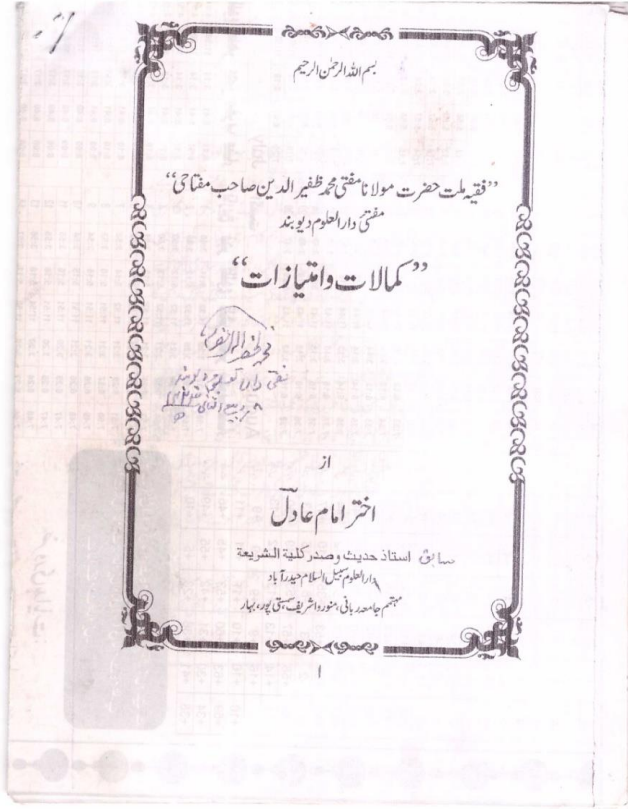 بسم اللہ الرحمٰن الرحیم
”فقیہ ملت حضرت مولانا مفتی محمد ظفیر الدین صاحب مفتاحی“
مفتئ دارالعلوم دیوبند
”کمالات وامتیازات“
دیوبند
ربیع الثانی
از
اختر امام عادلؔ
سابق استاذ حدیث وصدر کلیۃ الشریعۃ
دارالعلوم سبیل السلام حیدرآباد
مہتمم جامعہ ربانی، منوروا شریف سمستی پور، بہار
۱